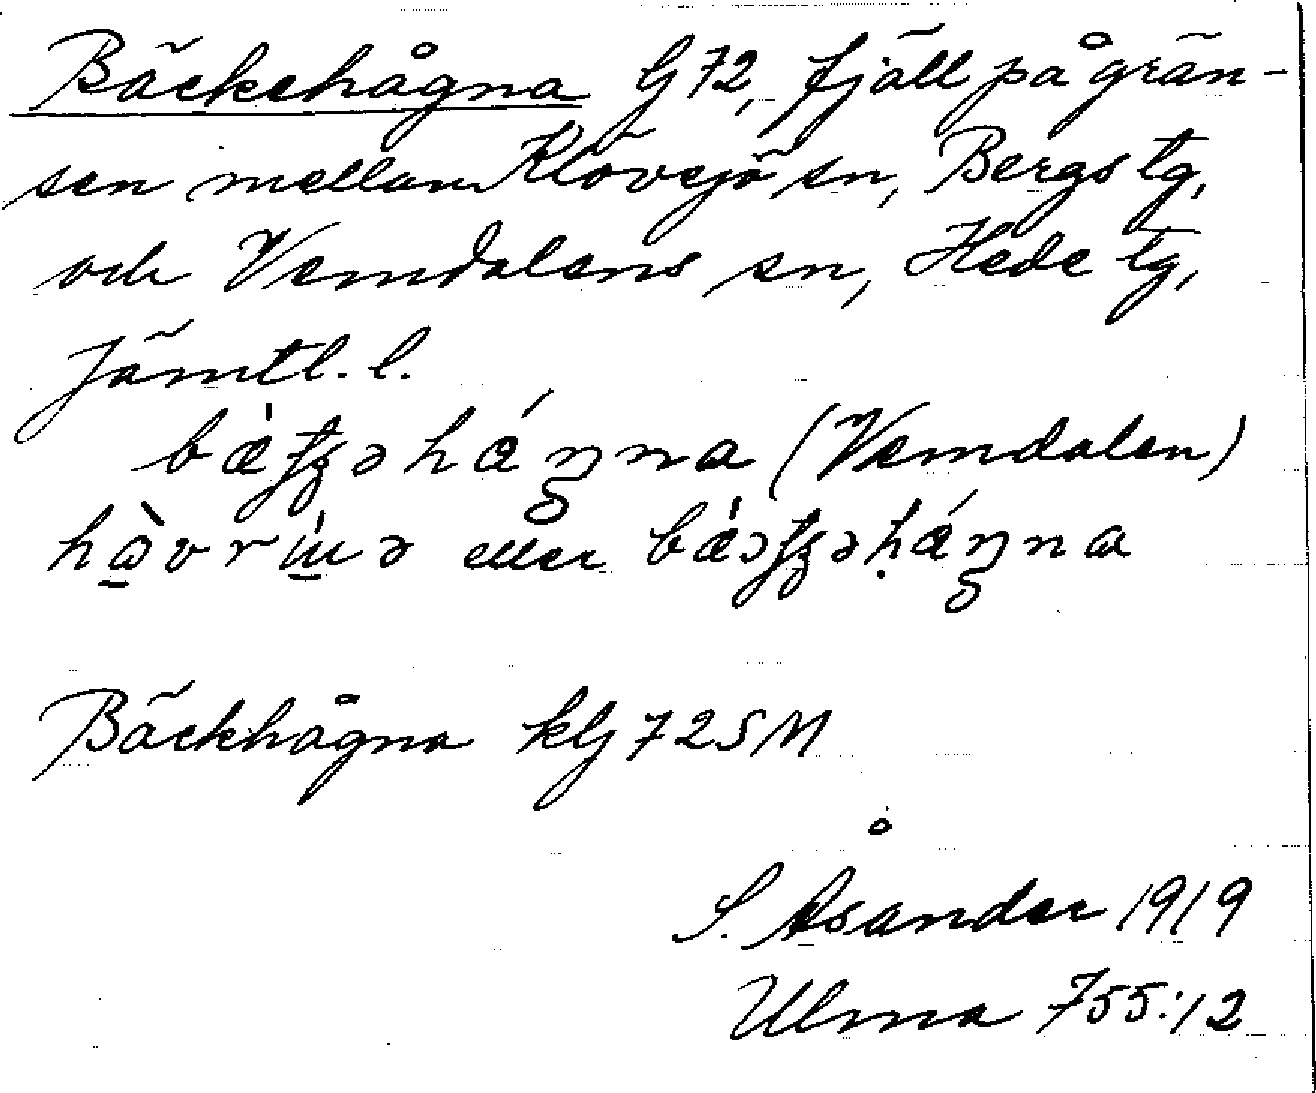 Bäckehågna G 72, fjäll på grän-
sen mellan Klövsjö sn, Bergs tg,
och Vemdalens sn, Hede tg,
Jämtl. l.
(Vemdalen)
eller
Bäckhågna klg 72 SM
S. Åsander 1919
Ulma 755:12